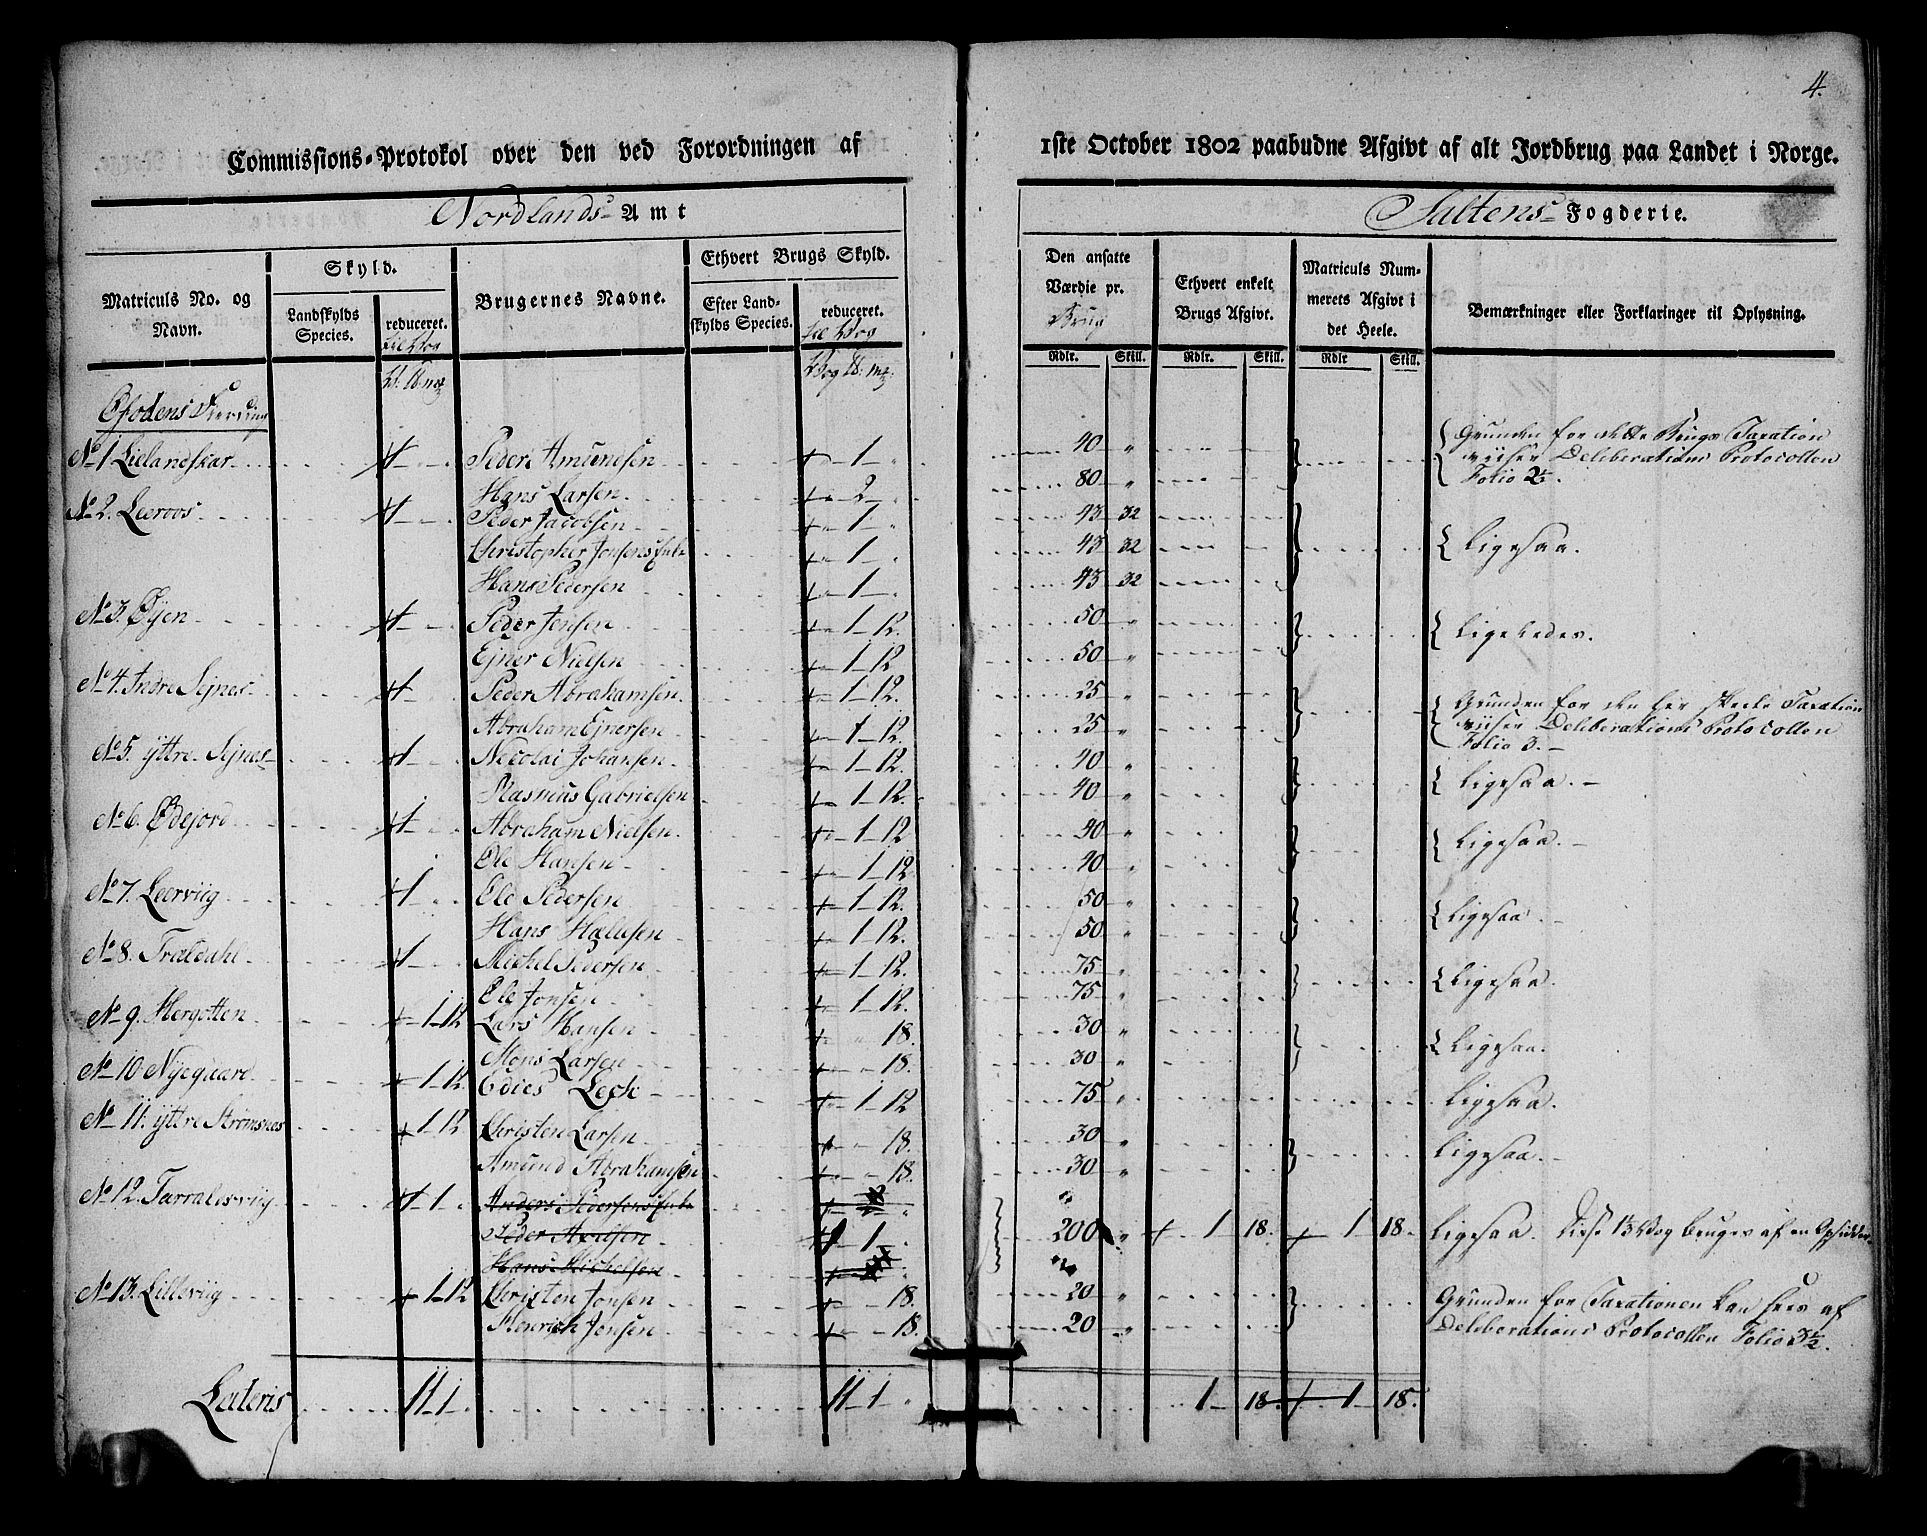 4.
Commissions-Protokol over den ved Forordningen af 1ste October 1802 paabudne Afgivt af alt Jordbrug paa Landet i Norge.
Nordlands Amt
Saltens Fogderie.
Matriculs No. og Navn.
Skyld.
Landskylds Species.
reduceret. til Vog
V. ℔ mk
Brugernes Navne.
Ethvert Brugs Skyld.
Efter Landskylds Species.
reduceret. til Vog
Vog ℔: mk:
Den ansatte Værdie pr. Brug
Rdlr. Skill.
Ethvert enkelt Brugs Afgivt.
Rdlr. Skill.
Matriculs Nummerets Afgivt i det Heele.
Rdlr Skill.
Bemærkninger eller Forklaringer til Oplysning.
Ofodens Fierding
No 1 Lielandskar Peder Amundsen 1 40 " Grunden for dette Brugs Taxation
viiser Deliberations Protocollen
Hans Larsen 2 80 " Folio 2.
No 2. Leeroos Peder Jacobsen 1 43 32
Christopher Jonsens Enke 1 43 32 Ligesaa.
Hans Pedersen 1 43 32
No 3. Øyen Peder Jensen 1 12. 50 " Ligeledes.
Ejner Nielsen 1 12 50 "
No 4. Indre Sejnes Peder Abrahamsen 1 12. 25 " Grunden for den her skeede Taxation
Abraham Ejnersen 1 12. 25 " viiser Deliberations Protocollen
Folio 3.
No 5. yttre Sejnes Nicolai Johansen 1 12. 40 " Ligesaa.
Rasmus Gabrielsen 1 12. 40 "
No 6. Ødejord Abraham Nielsen 1 12 40 " Ligesaa.
Ole Hansen 1 12 40 "
No 7. Leerviig Ole Pedersen 1 12. 50 " Ligesaa.
Hans 1 12. 50 "
No 8. Traldahl Michel Pedersen 1 12. 75 " Ligesaa.
Ole Jonsen 1 12. 75 "
No 9. Hergotten 1 12 Lars Hansen 18. 30 " Ligesaa.
Mons Larsen 18. 30 "
No 10 Nyegaard 1 12. 1 12 75 " Ligesaa.
No 11. yttre Strømsnes 1 12 Christen Larsen 18. 30 " Ligesaa.
Amund Abrahamsen 18. 30 "
No 12. Tarraldsviig 1 Anders Pedersens Enke
Peder Axelsen 1 200 " 1 18. 1 18. Ligesaa. Disse 1½ Vog bruges af en Opsidder
Hans Michelsen
No 13. Lilleviig 1 12 Christen Jonsen 18. 20 " Grunden for Taxationen kan sees af
Henrich Jonsen 18. 20 " Deliberations Protocollen Folio 3½.
Lateris 11 1 11 1 1 18. 1 18.